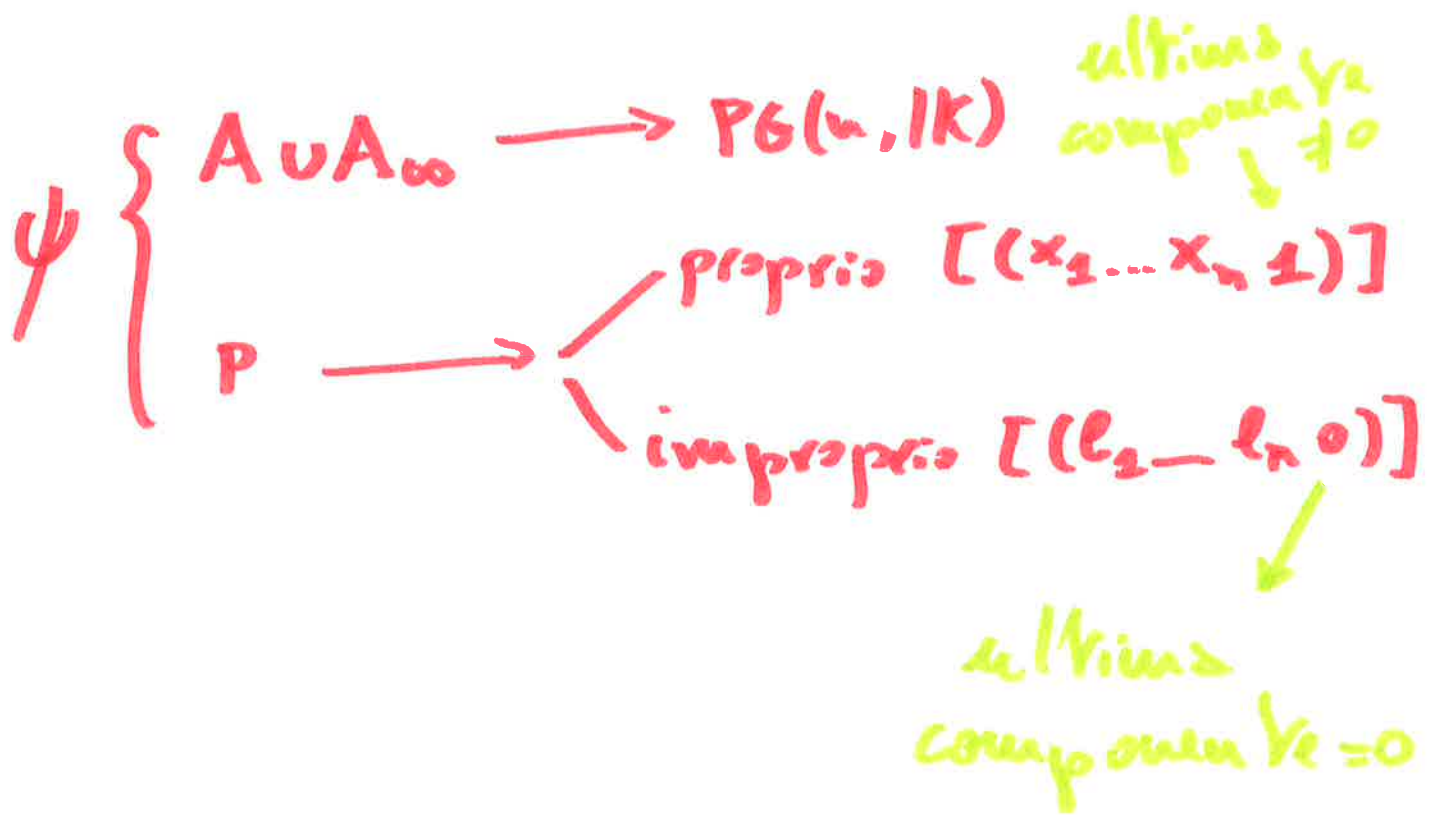 ψ { A ∪ A∞ → PG(n, 𝕂)
ultima
componente
≠0
proprio [(x1 ... xn 1)]
P →
improprio [(l1 _ ln 0)]
ultima
componente =0